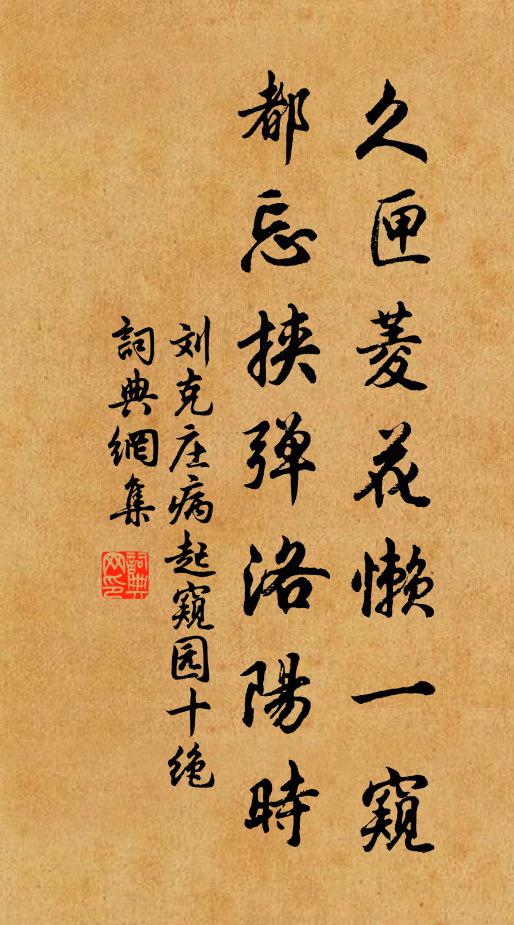 久匣菱花懒一窥
都忘挟弹洛陽時
刘克庄病起窥园十绝
詞典網集
詞典網印